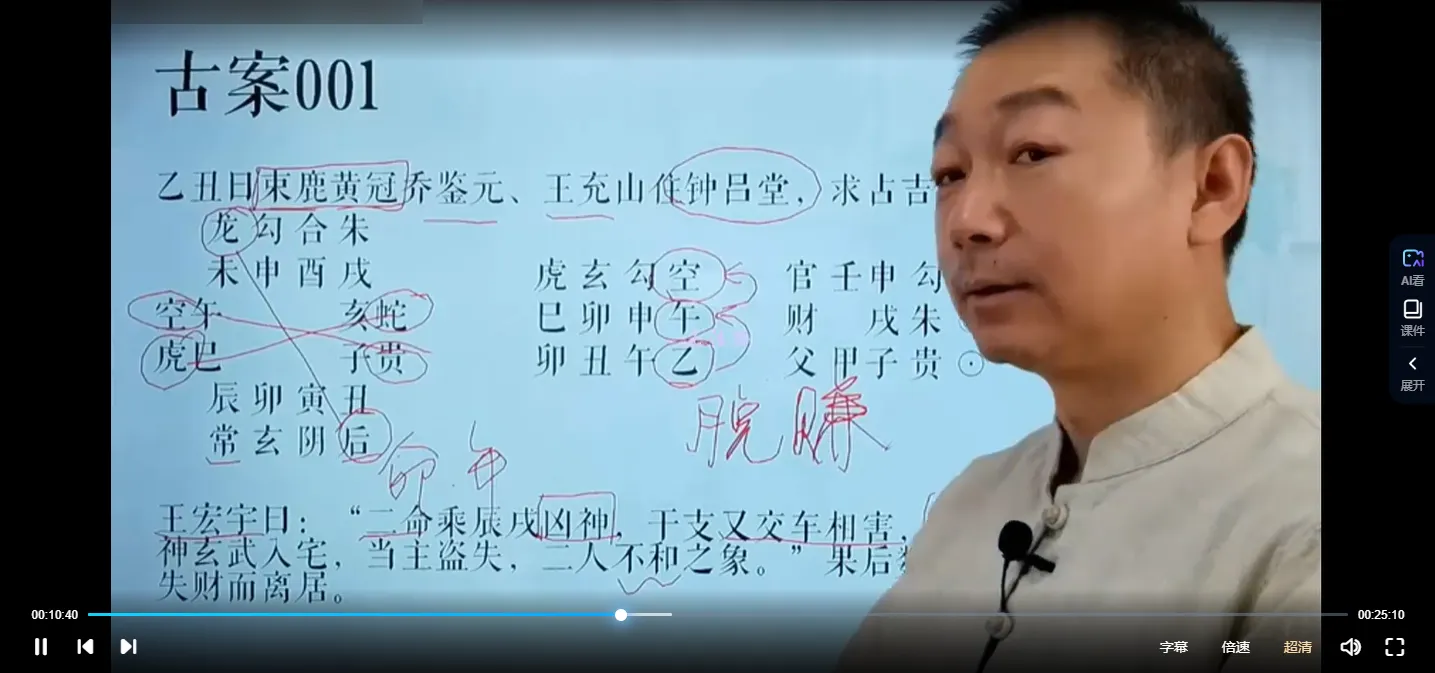 古案001
乙丑日束鹿黄冠乔鉴元、王充山住钟吕堂，求占吉
龙勾合朱
未申酉戌 虎玄勾空 官壬申勾
空午 亥蛇 巳卯申午 财 戌朱
虎巳 子贵 卯丑午乙 父甲子贵
辰卯寅丑
常玄阴后
脱赚
卯 午
王宏宇曰：“二命乘辰戌凶神，干支又交车相害，
神玄武入宅，当主盗失，二人不和之象。”果后
失财而离居。
AI看
课件
展开
00:10:40 00:25:10
字幕 倍速 超清